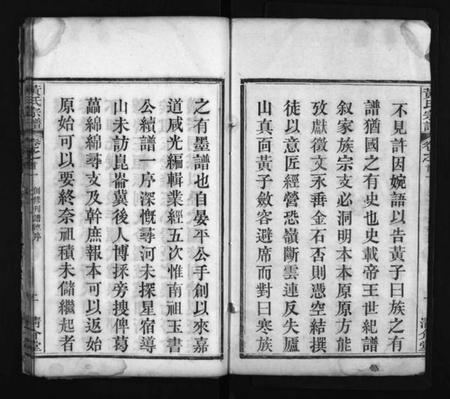 不見許因婉語以告黃子曰族之有
譜猶國之有史也史載帝王世紀譜
叙家族宗支必洞明本本原原方能
攷獻徵文永垂金石否則憑空結撰
徒以意匠經營恐嶺斷雲連反失廬
山真面黃子斂容避席而對曰寒族
黃氏宗譜
之有墨譜也自晏平公手創以來嘉
道咸光編輯業經五次惟南祖玉書
公續譜一序深慨尋河未探星宿導
山未訪崑崙冀後人博採旁搜俾葛
藟綿綿尋支及幹庶報本可以返始
原始可以要終奈祖積未儲繼起者
黃氏宗譜
卷之首